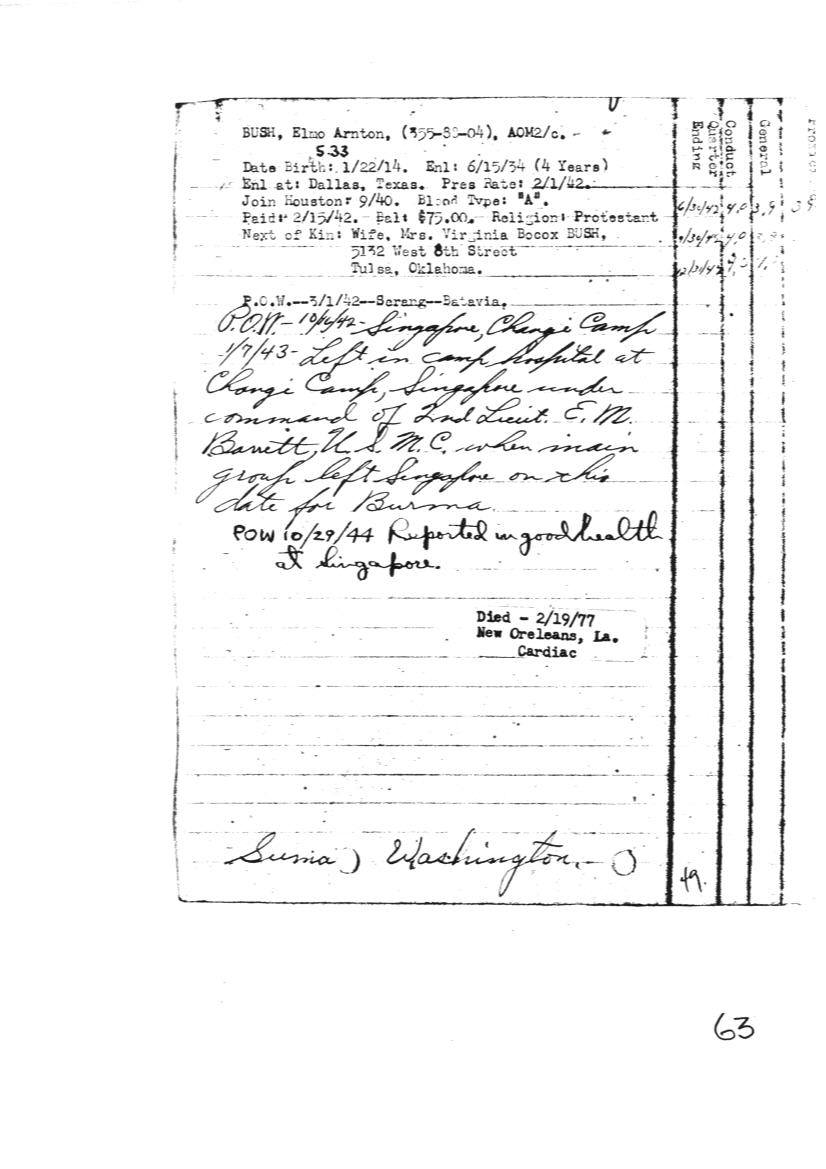 BUSH, Elmo Arnton, (355-38-04), AOM2/c. -
533
Date Birth: 1/22/14. Enl: 6/15/34 (4 Years)
Enl at: Dallas, Texas. Pres Rate: 2/1/42.
Join Houston: 9/40. Blood Type: "A".
Paid: 2/15/42. Bal: $75.00. Religion: Protestant
Next of Kin: Wife, Mrs. Virginia Bocox BUSH,
5132 West 8th Street
Tulsa, Oklahoma.
P.O.W.--3/1/42--Serang--Batavia.
P.O.W.- 10/16/42- Singapore, Changi Camp
1/7/43- Left in camp hospital at
Changi Camp, Singapore under
command of 2nd Lieut. E. M.
Barrett, U. S. M. C. when main
group left Singapore on this
date for Burma.
POW 10/29/44 Reported in good health
at Singapore.
Died - 2/19/77
New Oreleans, La.
Cardiac
Suma) Washington.-
Quarter Ending
Conduct
General
6/30/42 4.0 3.9
9/30/42 4.0
12/31/42
49.
63